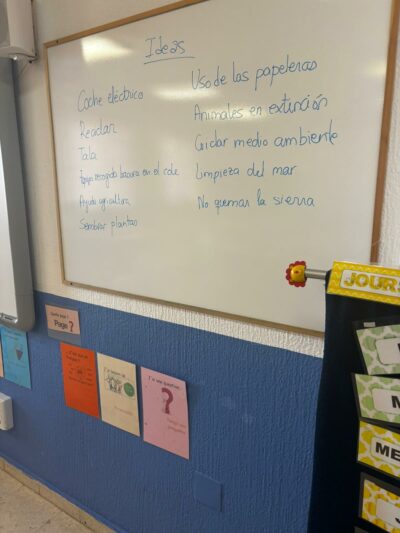 Ideas
Coche eléctrico
Reciclar
Tala
Equipo recogida basura en el cole
Ayuda agricultora
Sembrar plantas
Uso de las papeleras
Animales en extinción
Cuidar medio ambiente
Limpieza del mar
No quemar la sierra
Page ?
?
JOURS
M
ME